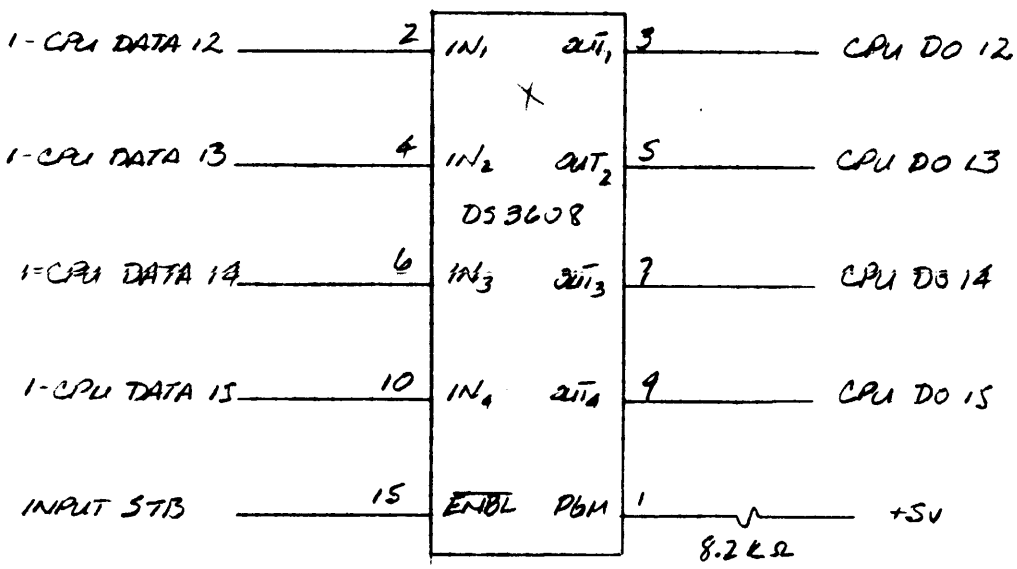 1-CPU DATA 12 2 IN1 OUT1 3 CPU DO 12
X
1-CPU DATA 13 4 IN2 OUT2 5 CPU DO 13
DS3608
1-CPU DATA 14 6 IN3 OUT3 7 CPU DO 14
1-CPU DATA 15 10 IN4 OUT4 9 CPU DO 15
INPUT STB 15 ENBL PGM 1 +5V
8.2 KΩ